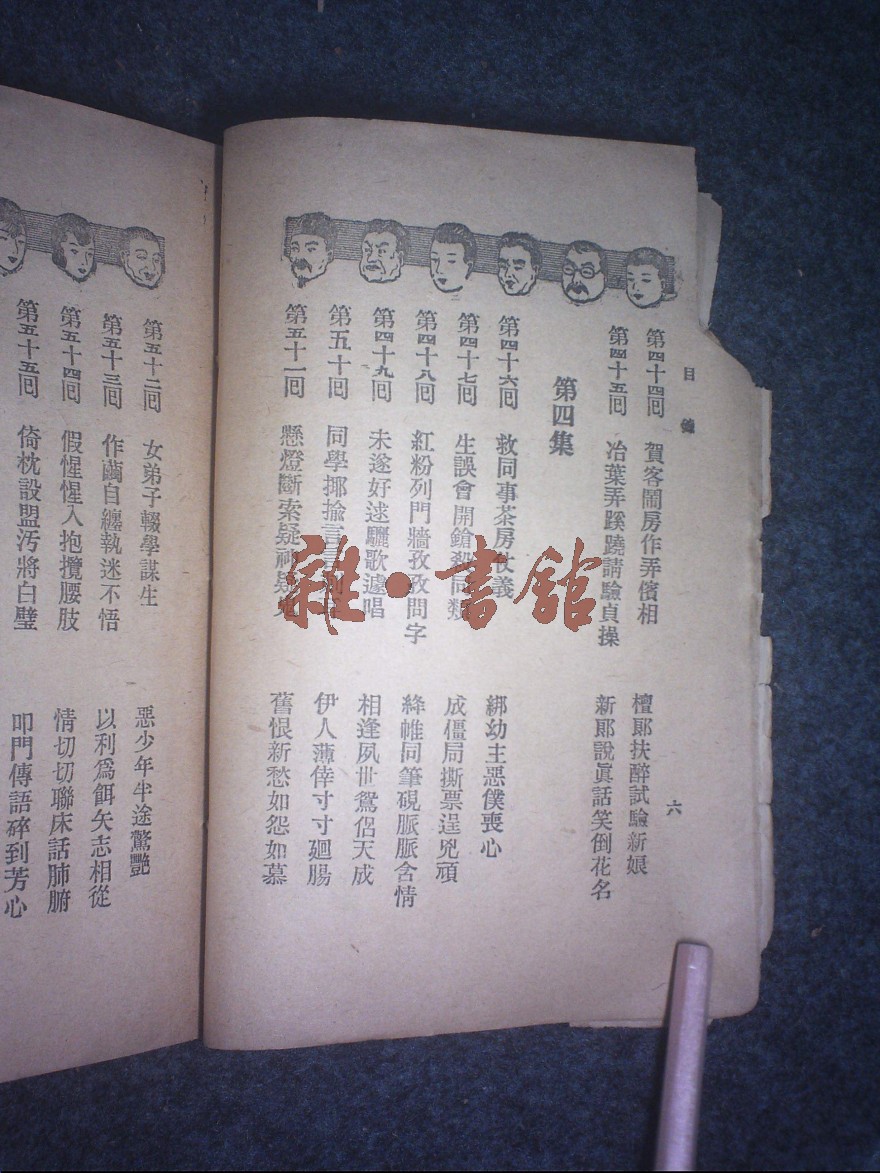 目錄
六
第四十四回 賀客鬧房作弄儐相 檀郞扶醉試驗新娘
第四十五回 冶葉弄蹊蹺請驗貞操 新郞說眞話笑倒花名
第四集
第四十六回 救同事茶房仗義 綁幼主惡僕喪心
第四十七回 生誤會開鎗殺同類 成僵局撕票逞兇頑
第四十八回 紅粉列門牆孜孜問字 絳帷同筆硯脈脈含情
第四十九回 未遂好逑驪歌遽唱 相逢夙世鴛侶天成
第五十回 同學揶揄言 伊人薄倖寸寸廻腸
第五十一回 懸燈斷索疑神疑鬼 舊恨新愁如怨如慕
第五十二回 女弟子輟學謀生 惡少年半途驚艷
第五十三回 作繭自纏執迷不悟 以利爲餌矢志相從
第五十四回 假惺惺入抱攬腰肢 情切切聯床話肺腑
第五十五回 倚枕設盟汚將白璧 叩門傳語碎到芳心
雜·書館